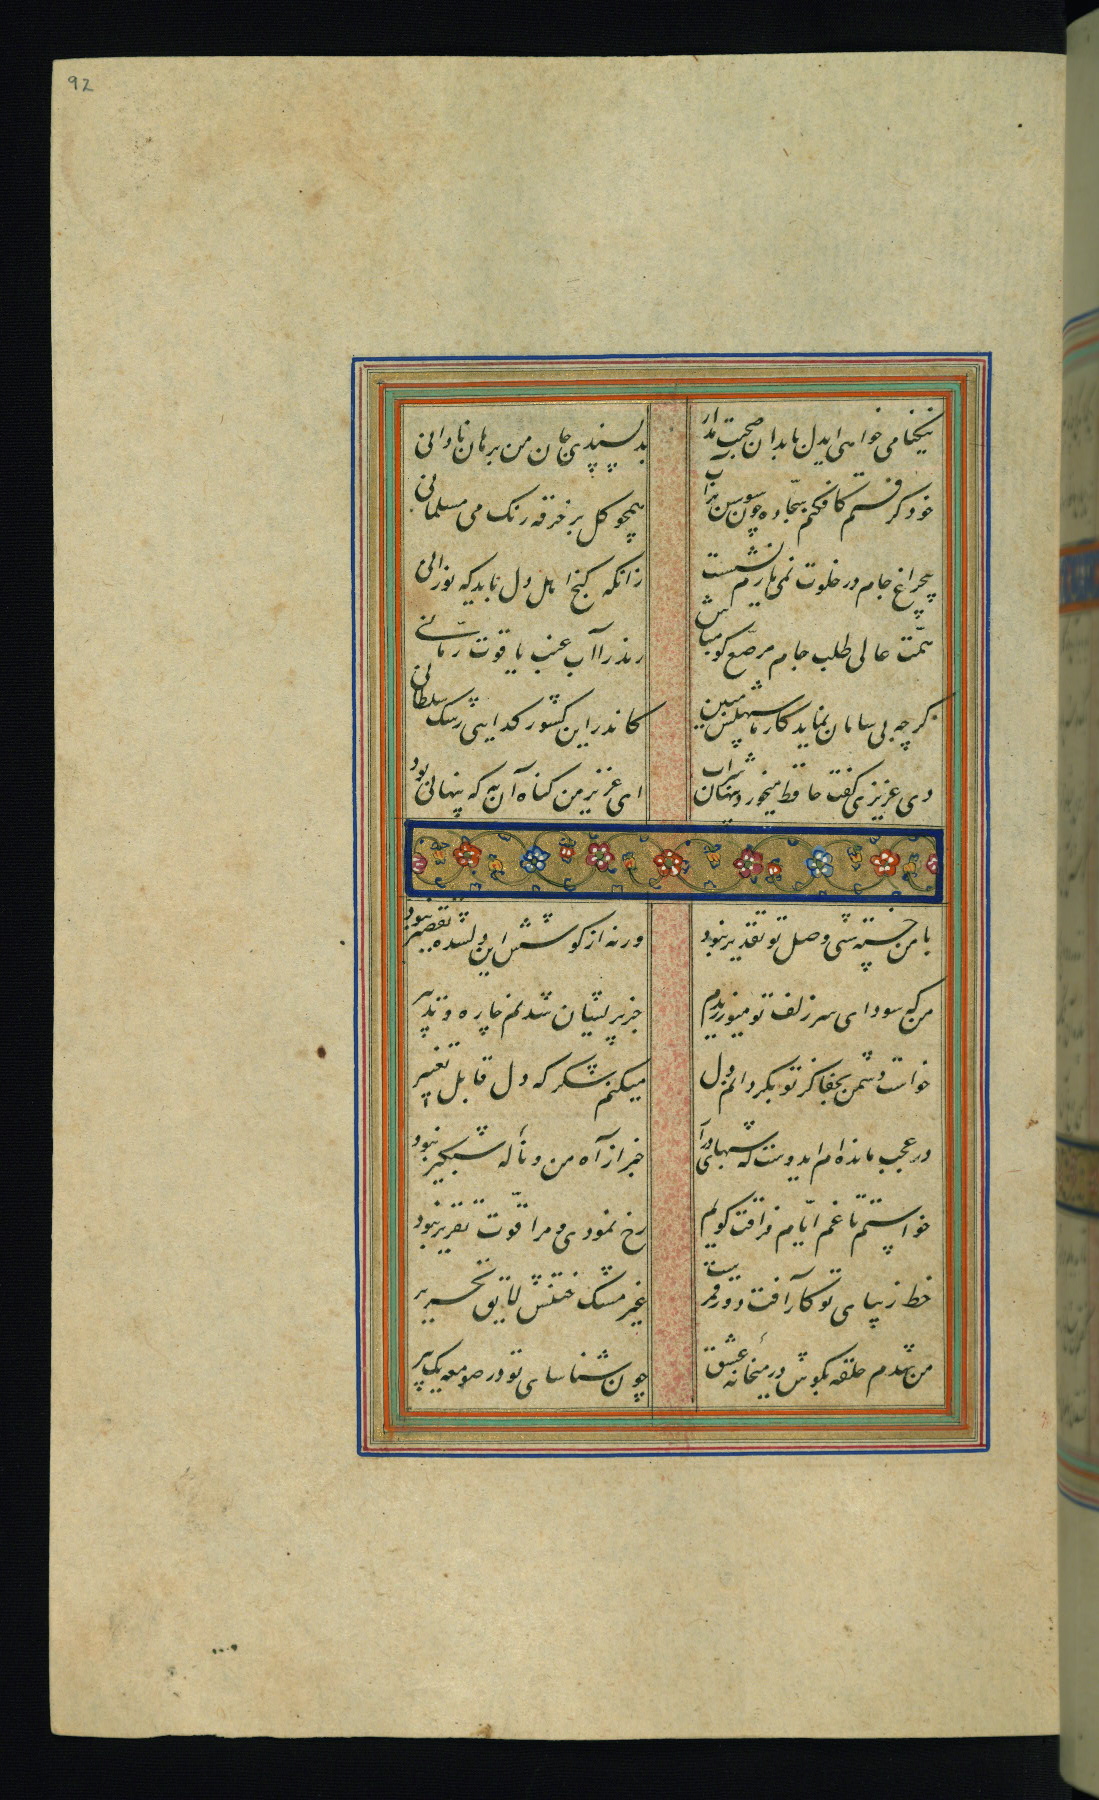 92
نیکنامی خواهی ایدل بابدان صحبت مدار
بد پسندی جان من برهان نادانی
خود گرفتم کافکنم سجاده چون سوسن
همچو گل بر خرقه رنک می مسلمانی
بیچراغ جام در خلوت نمی یارم نشست
زانکه کنج اهل دل باید که نورانی
همت عالی طلب جام مرصع کو مباش
رند را آب عنب یاقوت رمانی
کرچه بی سامان نماید کار ما سهلش مبین
کاندر این کشور کدایی رشک سلطانی
دی عزیزی کفت حافظ میخورد پنهان شراب
ای عزیز من کناه آن به که پنهانی بود
با من خسته شبی وصل تو تقدیر نبود
ورنه از کوشش این دلشده تقصیر نبود
من که سودای سر زلف تو میورزیدم
جز پریشان شدنم چاره و تدبیر
خواست دشمن بجفا کز تو بکردانم دل
میکنم شکر که دل قابل تغییر
در عجب مانده ام ایدوست که شبهای دراز
خبر از آه من و ناله شبکیر نبود
خواستم تا غم ایام فراقت کویم
رخ نمودی و مرا قوت تقریر نبود
خط زیبای تو کآرآفت دور قمر
غیر مشک ختنش لایق تحریر
من شدم حلقه بکوش در میخانه عشق
چون شناسای تو در صومعه یک پیر